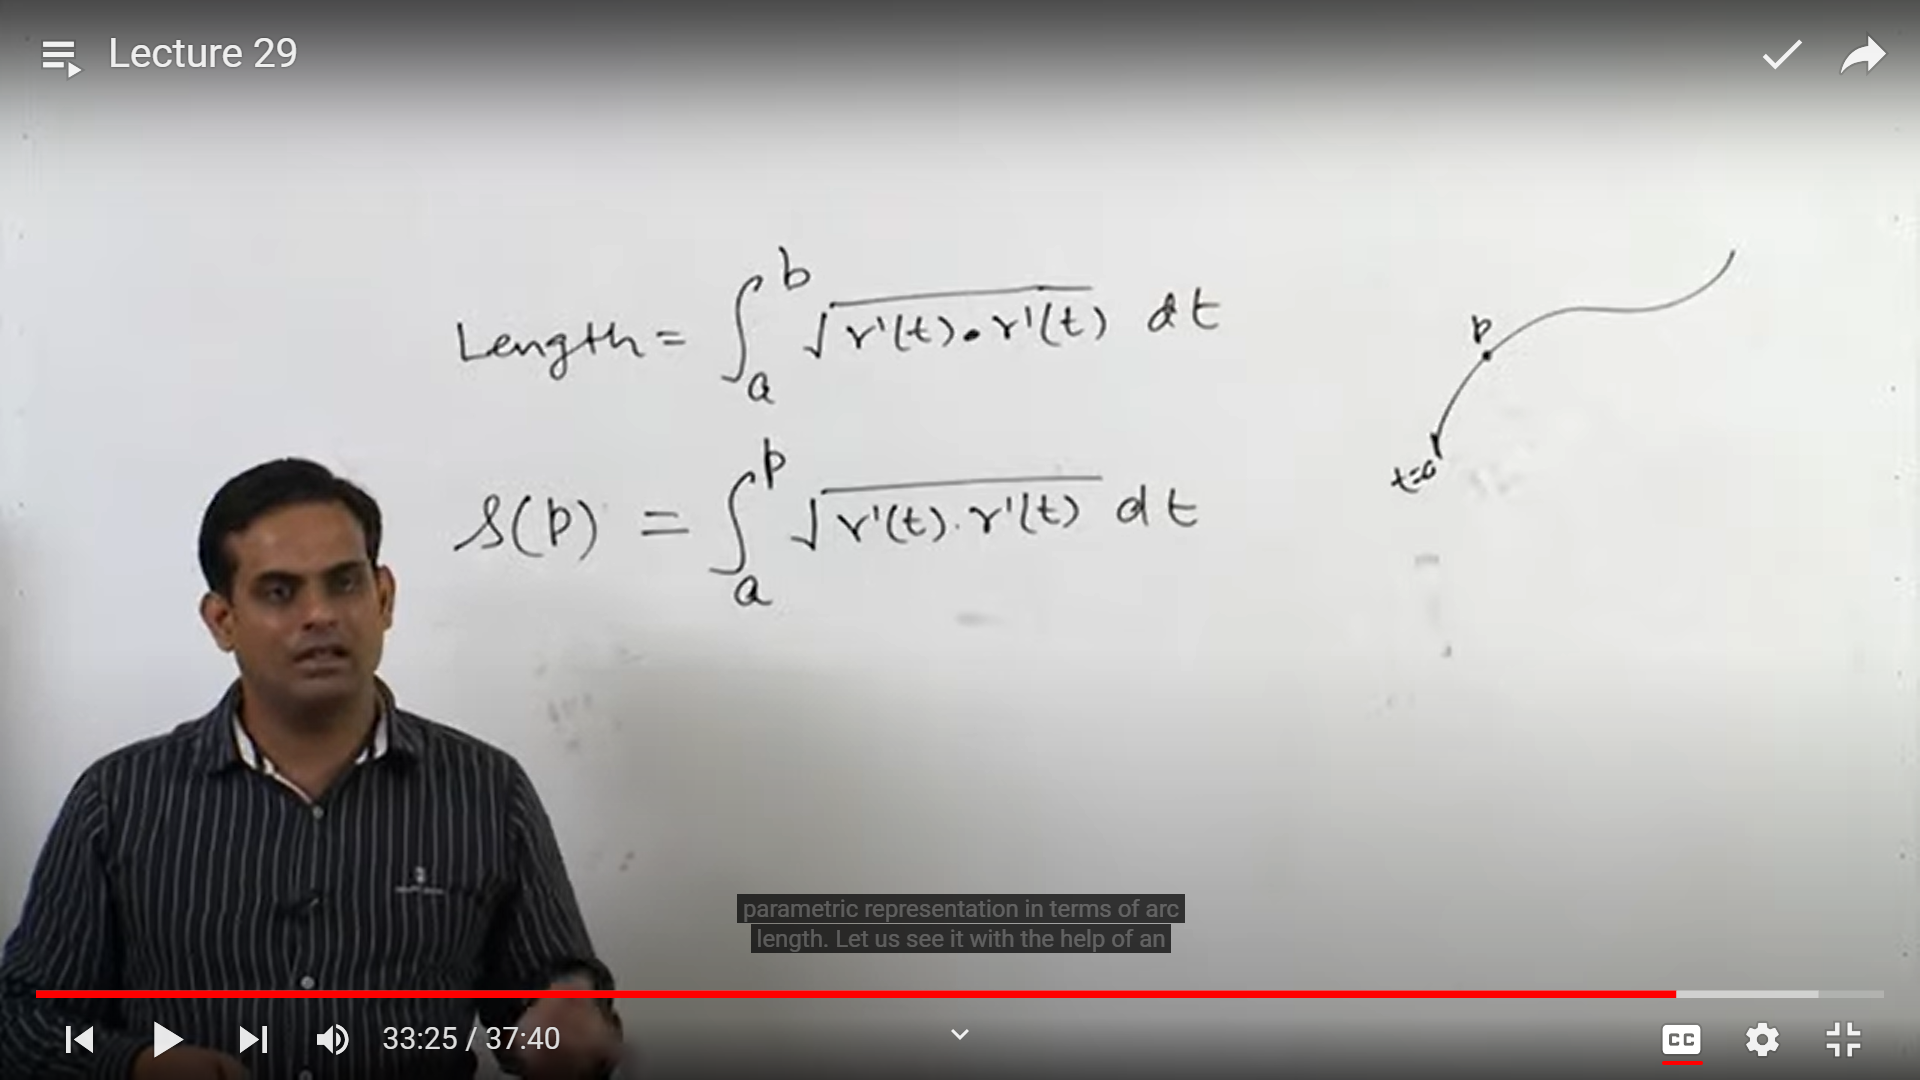 Lecture 29
Length = ∫_a^b √(r'(t)·r'(t)) dt
p
t=a
S(p) = ∫_a^p √(r'(t)·r'(t)) dt
parametric representation in terms of arc
length. Let us see it with the help of an
33:25 / 37:40
CC